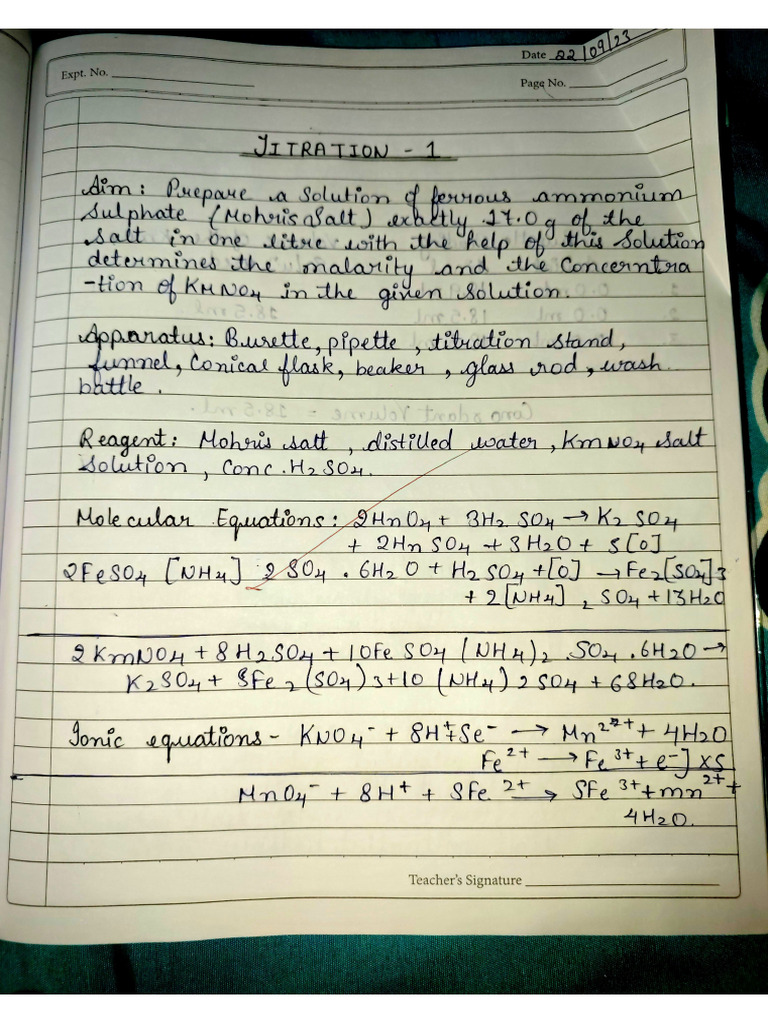 Date 22/09/23
Expt. No.
Page No.
TITRATION - 1
Aim: Prepare a solution of ferrous ammonium
Sulphate (Mohris Salt) exactly 17.0 g of the
salt in one litre with the help of this Solution
determines the malarity and the Concerntra
-tion of KMNO4 in the given solution.
Apparatus: Burette, pipette, titration stand,
funnel, Conical flask, beaker, glass rod, wash
battle.
Reagent: Mohris satt, distilled water, KmNO4 salt
Solution, Conc. H2SO4.
Molecular Equations: 2HnO4 + 3H2SO4 → K2SO4
+ 2HnSO4 + 3H2O + 5[O]
2FeSO4 [NH4] 2SO4 . 6H2O + H2SO4 + [O] → Fe2[SO4]3
+ 2[NH4]2SO4 + 13H2O
2KmNO4 + 8H2SO4 + 10FeSO4 (NH4)2 .SO4 .6H2O →
K2SO4 + 5Fe2(SO4)3 + 10 (NH4)2SO4 + 68H2O.
Ionic equations - KNO4⁻ + 8H⁺ + 5e⁻ → Mn²⁺ + 4H2O
Fe²⁺ → Fe³⁺ + e⁻] x5
MnO4⁻ + 8H⁺ + 5Fe²⁺ → 5Fe³⁺ + mn²⁺ +
4H2O.
Teacher's Signature